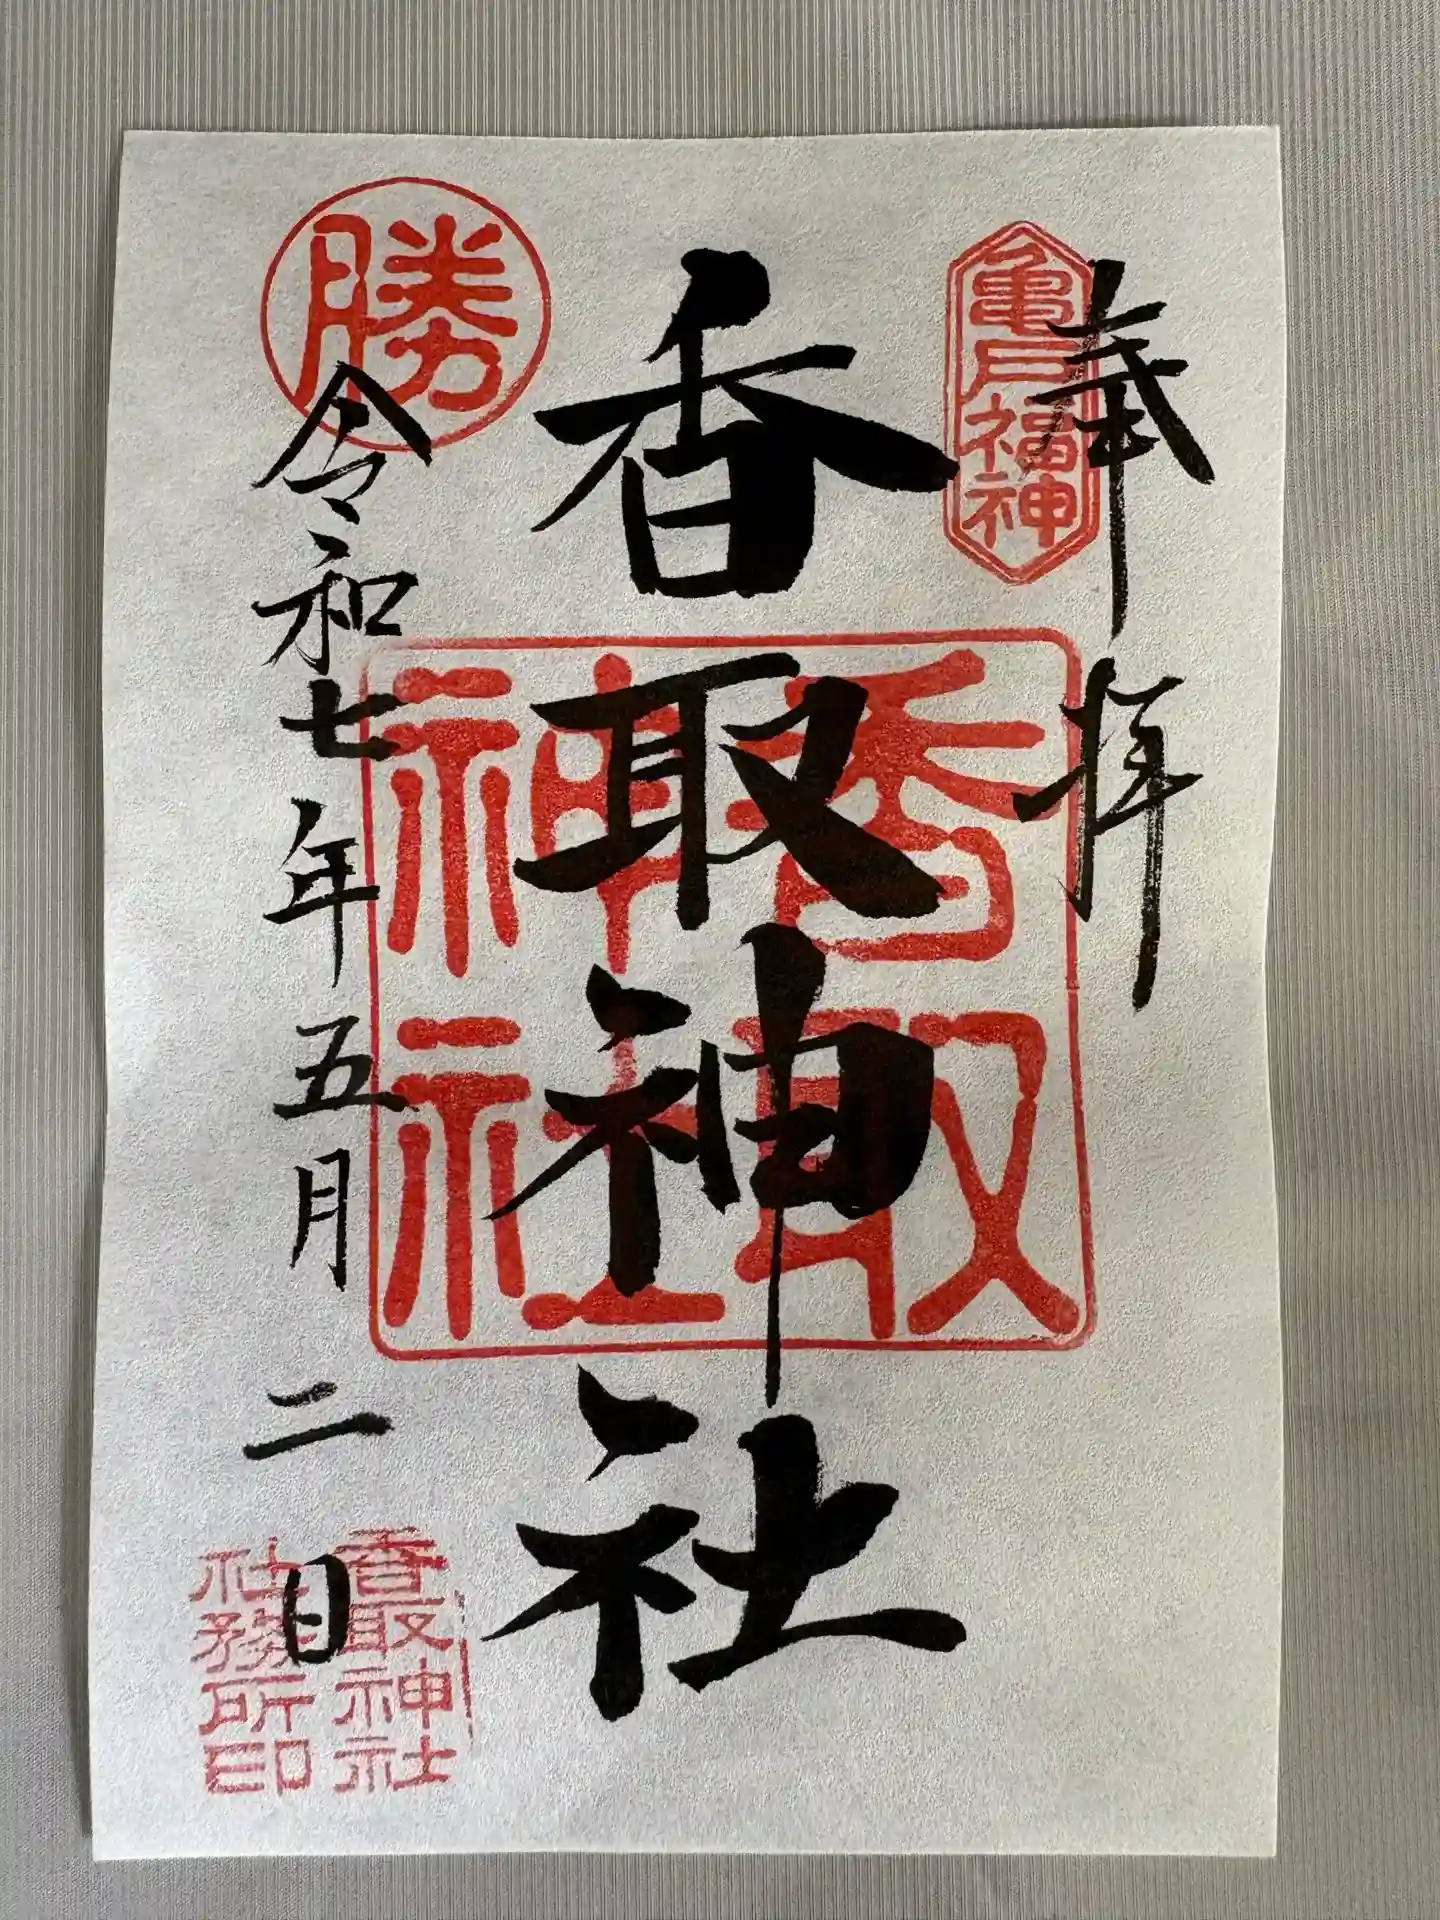 奉拝
亀戸福神
香取神社
香取
神社
勝
令和七年五月二日
香取神社
社務所印